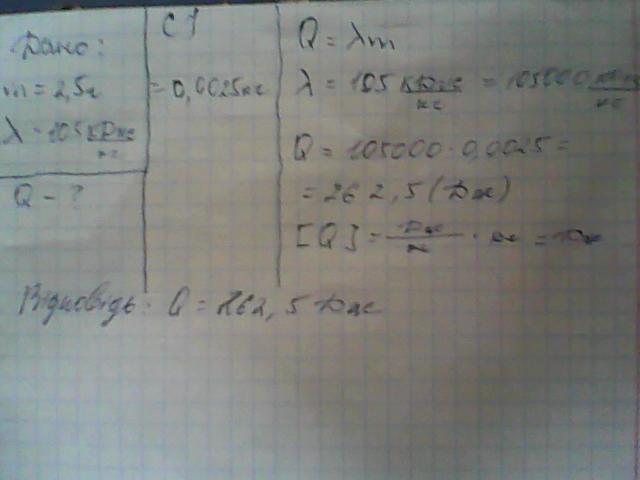 Дано:
m = 2,5г
λ = 105 кДж/кг
Q - ?
СІ
= 0,0025кг
Q = λm
λ = 105 кДж/кг = 105000
Q = 105000 · 0,0025 =
= 262,5 (Дж)
[Q] = Дж/кг · кг = Дж
Відповідь: Q = 262,5 Дж